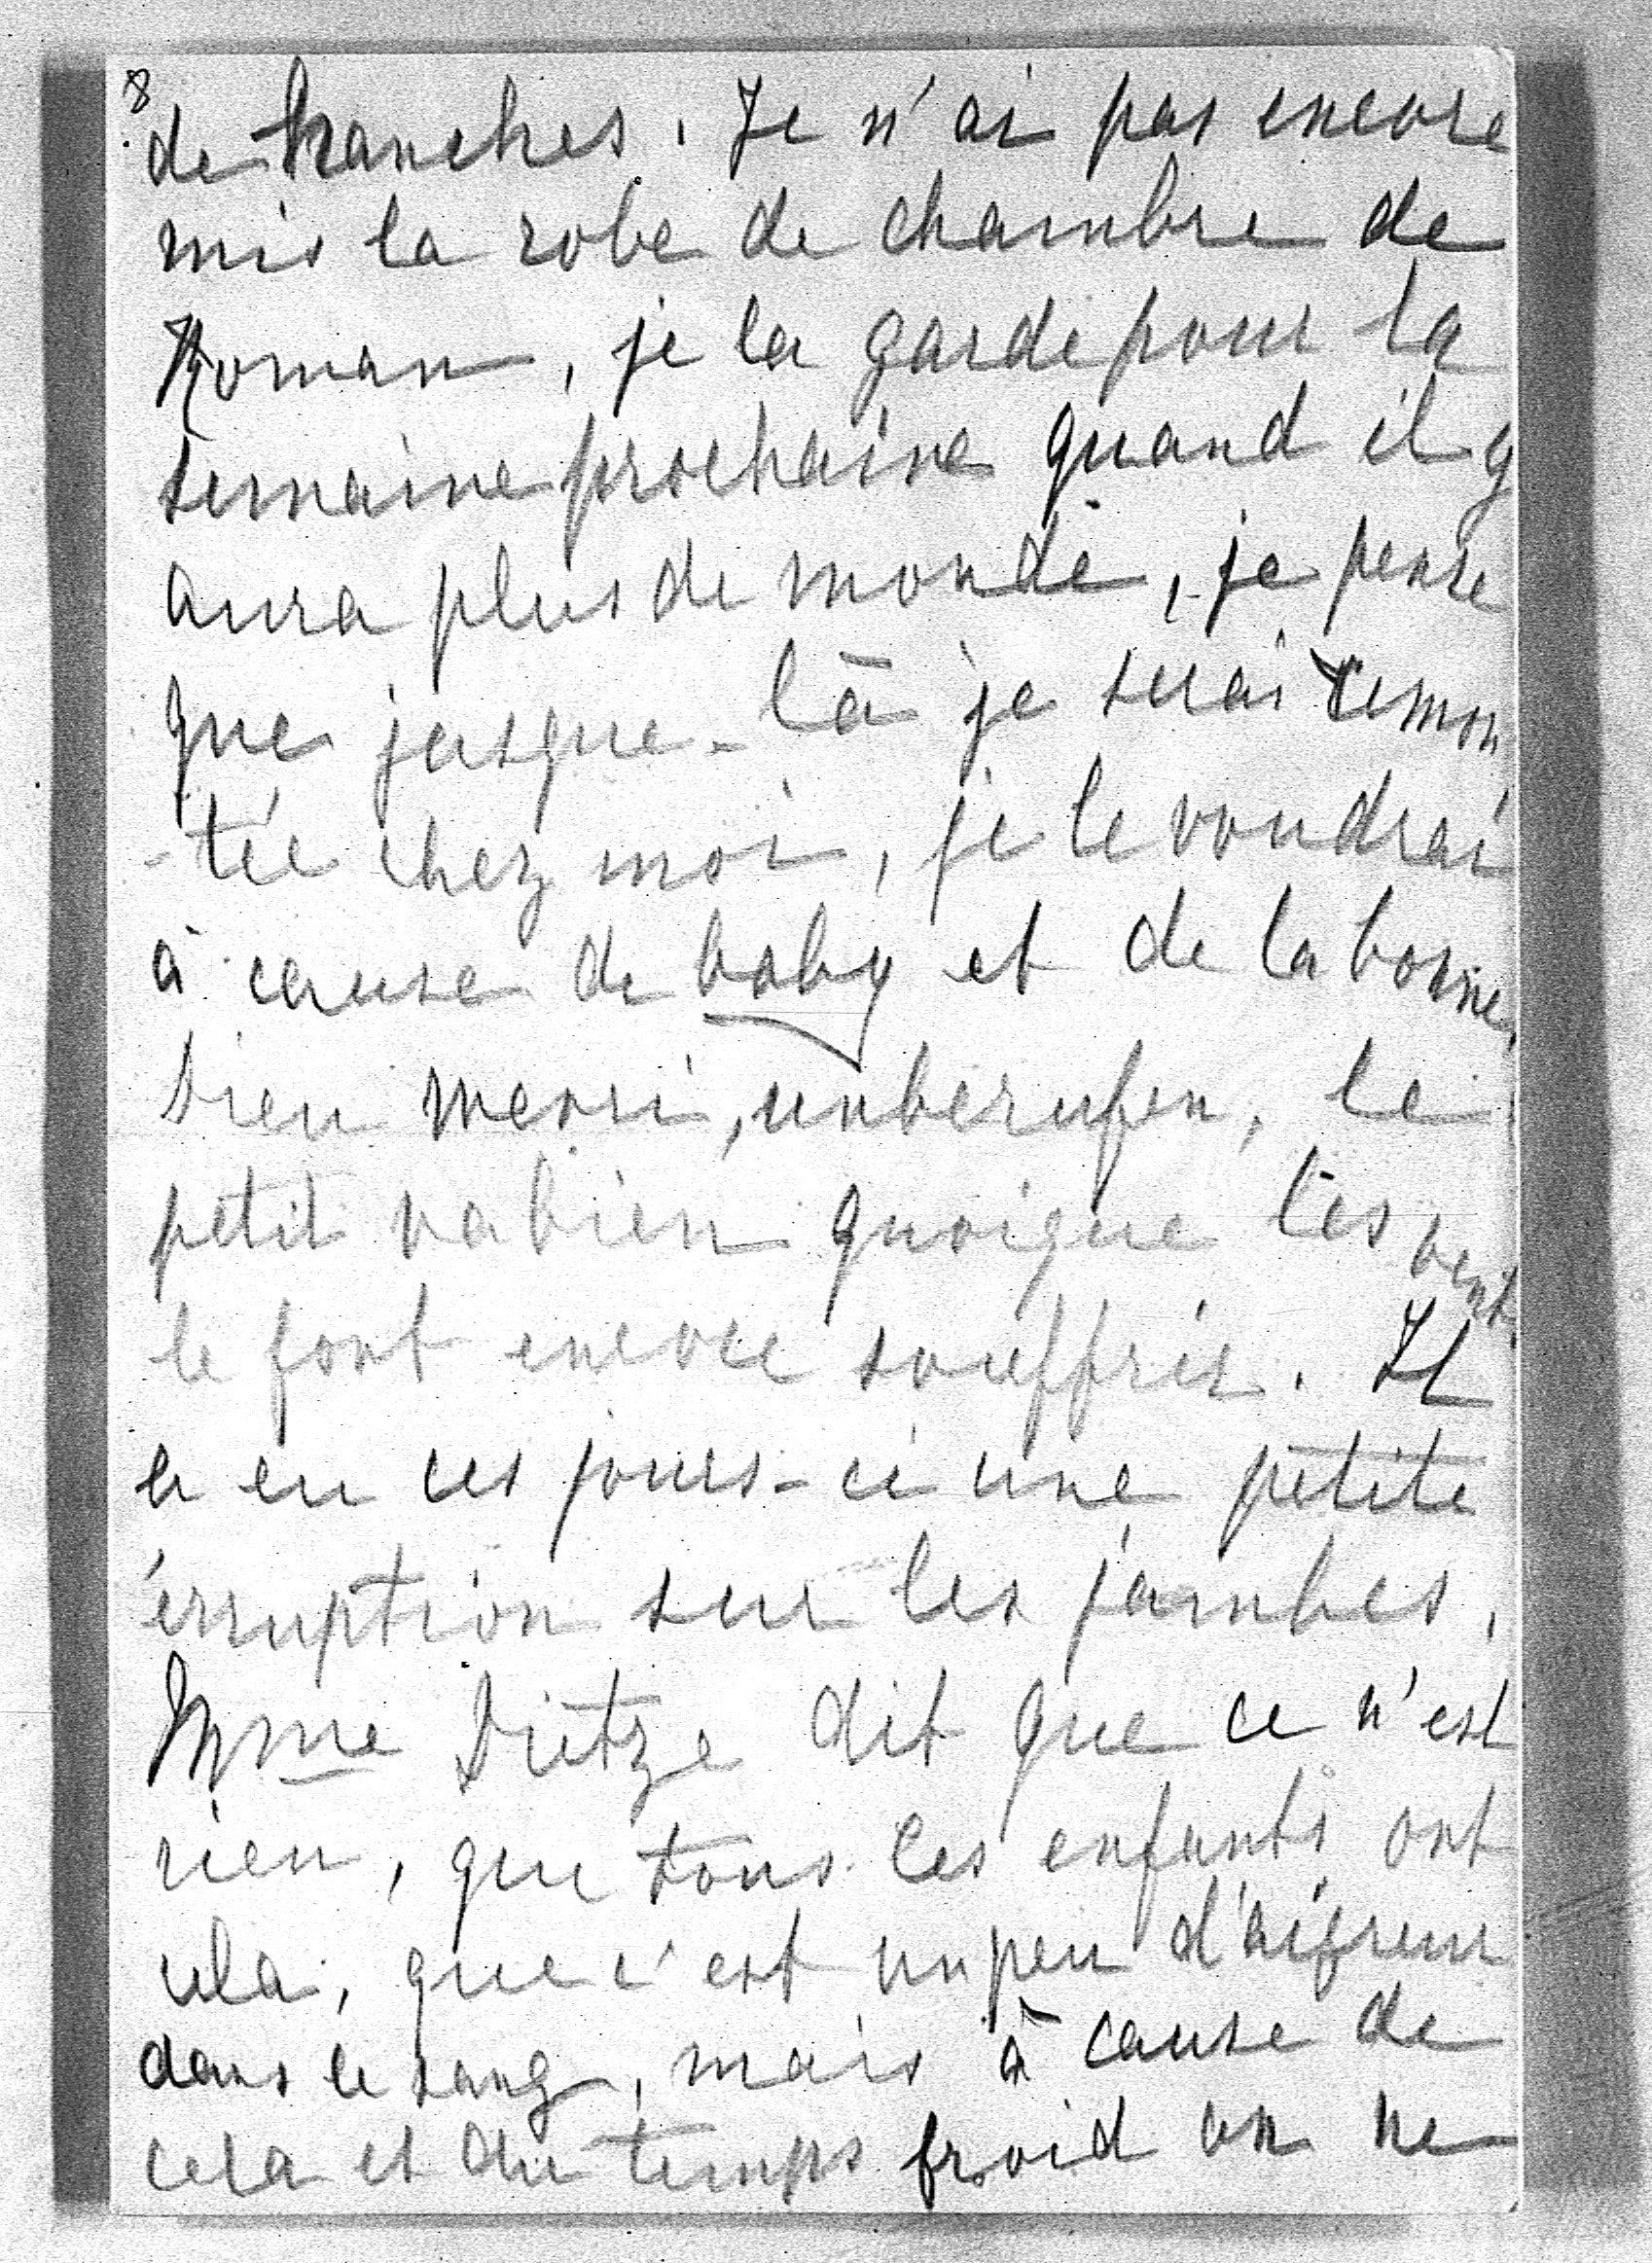 8
de hanches. Je n'ai pas encore
mis la robe de chambre de
Roman, je la garde pour la
semaine prochaine quand il y
aura plus de monde, je pense
que jusque-là je serai remon
-tée chez moi, je le voudrai
à cause de baby et de la bonne,
Dieu merci, unberufen, le
petit va bien quoique les vents
le font encore souffrir. Il
a eu ces jours-ci une petite
érruption sur les jambes,
Mme Dietze dit que ce n'est
rien, que tous les enfants ont
cela, que c'est un peu d'aigreur
dans le sang, mais à cause de
cela et du temps froid on ne